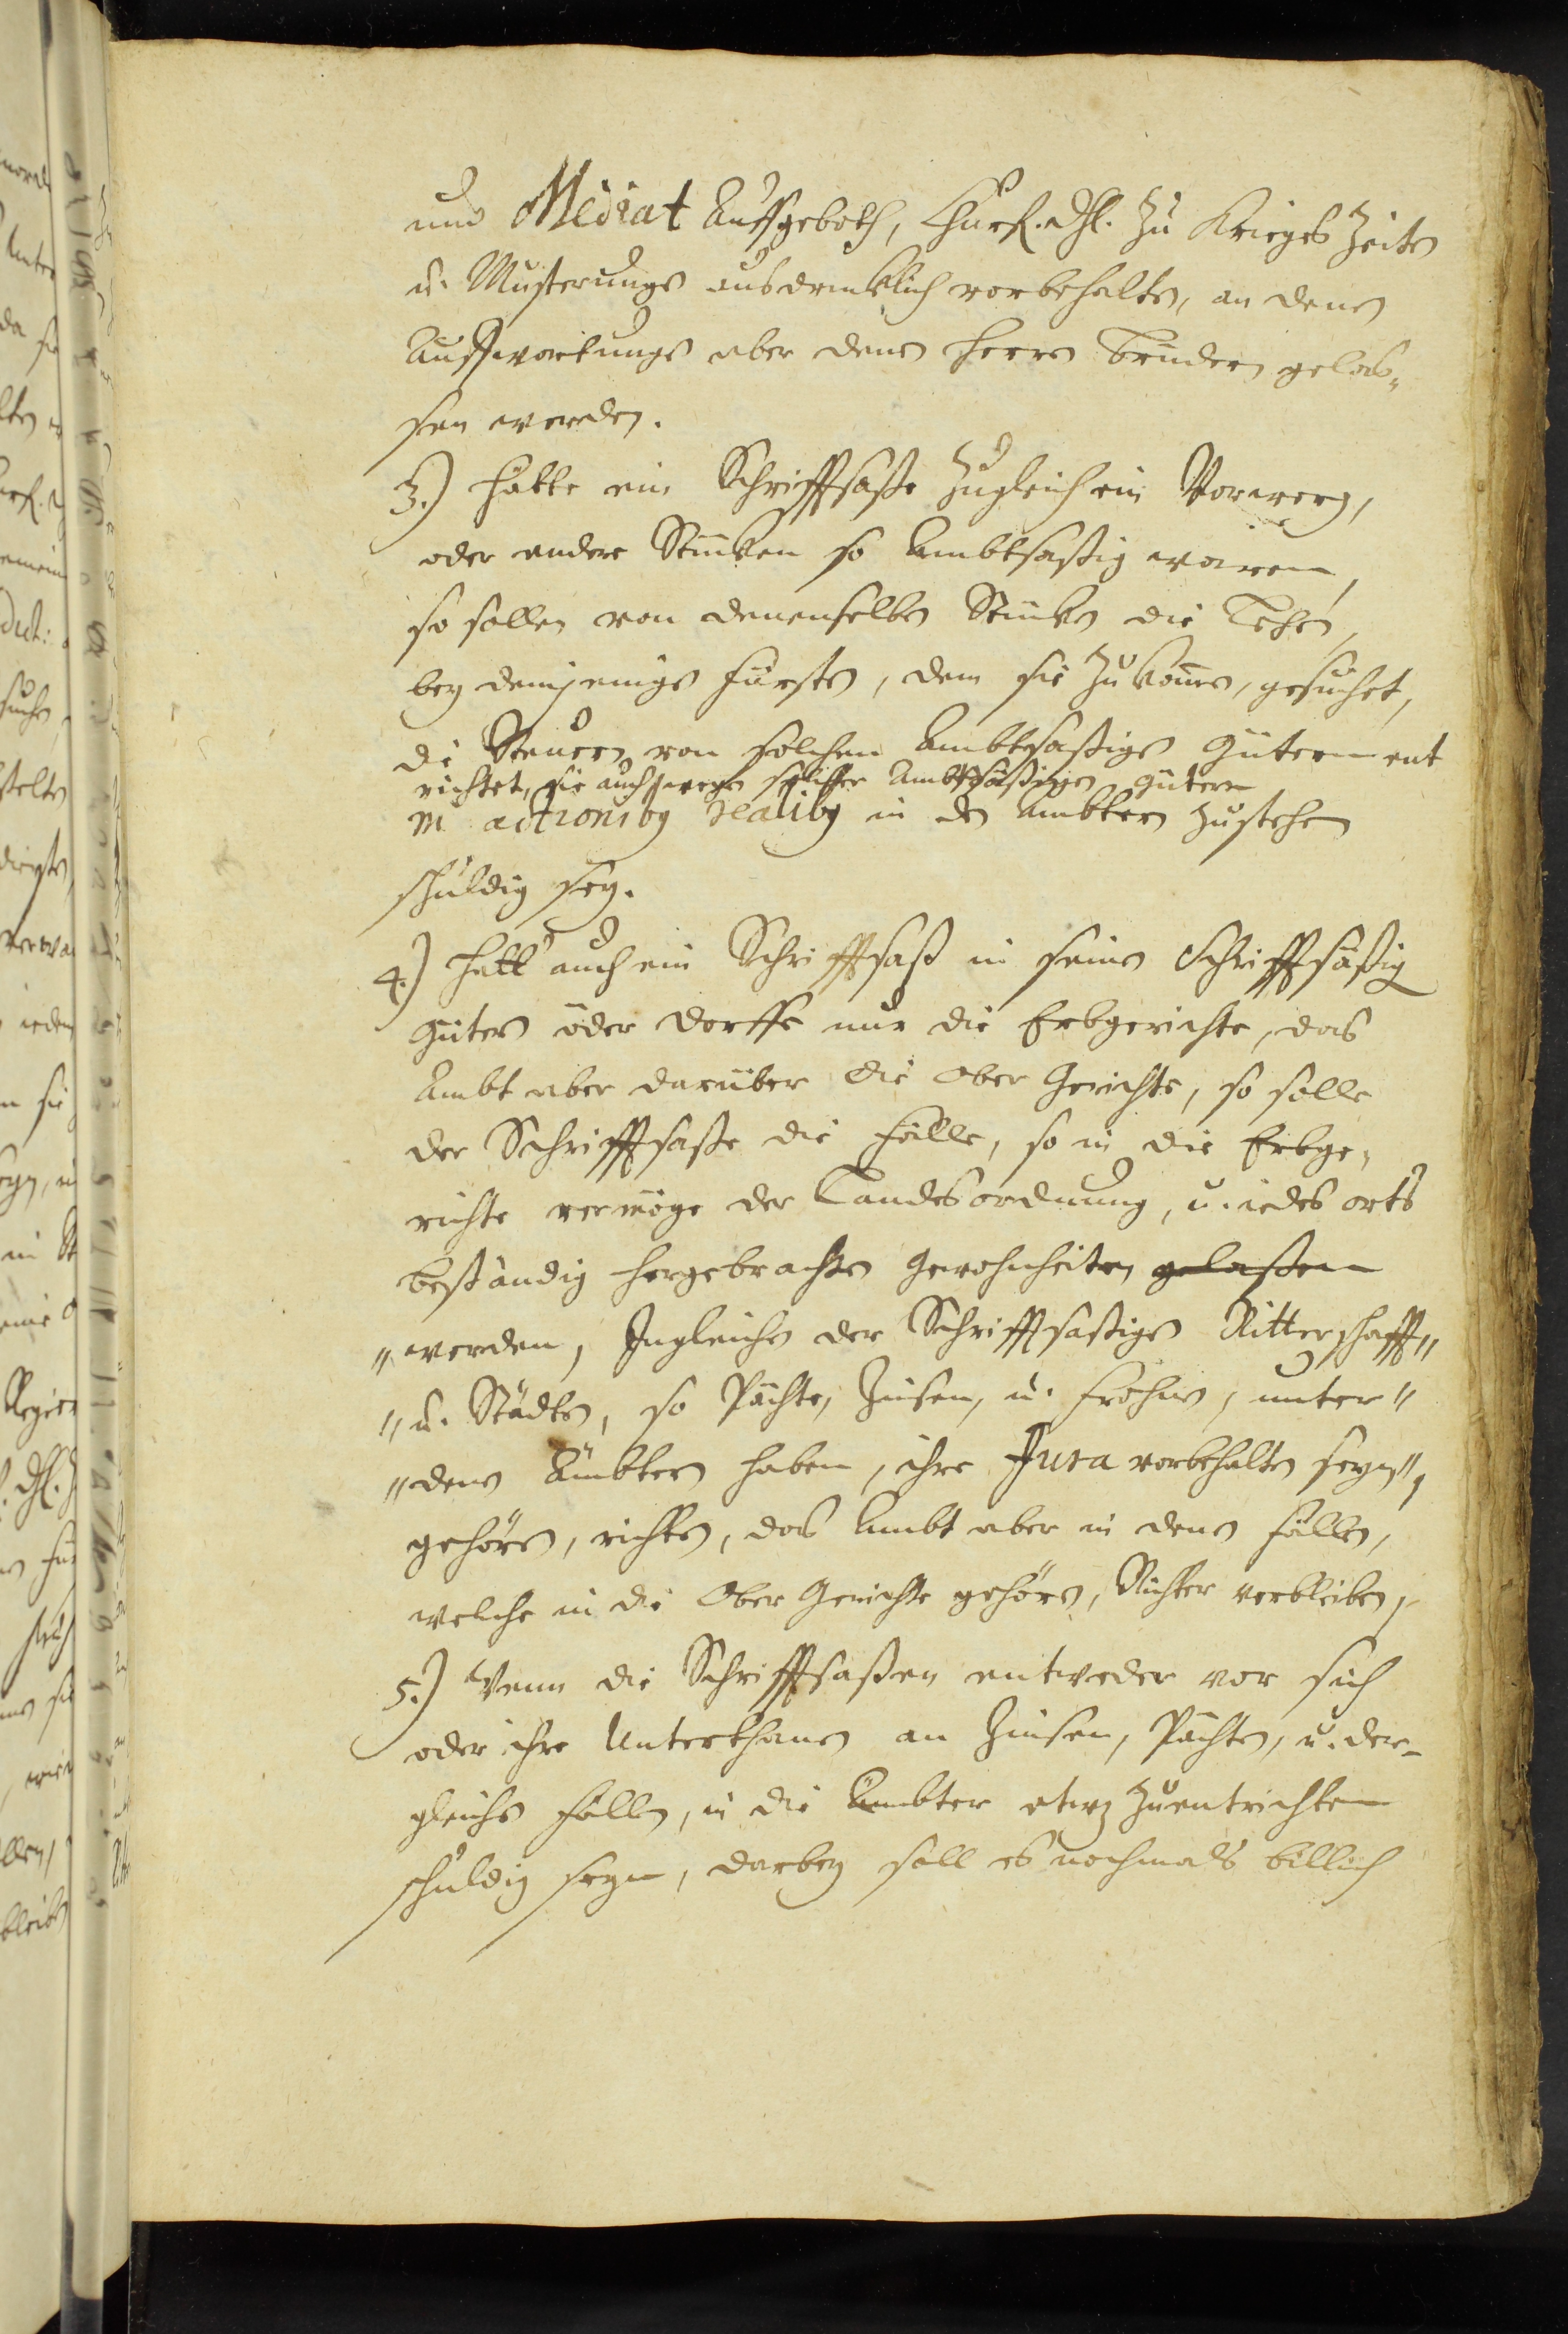 und Mediat Auffgeboth, Churf. Dhl. zu Krieges Zeiten
u. Musterungs ausdrücklich vorbehalten, an denen
Auffwartungs aber denen Herrn Brüdern gelas„
sen werden.
3.) Hätte ein Schrifftsaße zugleich ein Vorwerg,
oder andere Stücken so Ambtsaßig wären,
so sollen von denenselben Stücken die Lehen,
bey demjenigen Fürsten, dem sie zukom̄en, gesuchet,
di Steuern von solchen Ambtsaßigen Gütern ent
richtet, sie auch wegen solcher Ambtsäßigen Gütern
in actionibg realibg in den Ambtern zustehen
schuldig sey.
4.) Hett auch ein Schrifftsaß in seinen Schrifftsäßig
Gütern oder Dorffe nur die Erbgerichte, das
Ambt aber darüber die Ober Gerichte, so solle
der Schrifftsaße die Fälle, so in die Erbge„
richte vermöge der Landesordnung, u. iedes orts
beständig hergebrachten Gewohnheiten gelaßen
„werden, Ingleichen der Schrifftsaßigen Ritterschafft„
„u. Städten, so Pächte, Zinsen, u. Frohne, unter„
„denen Ämbtern haben, ihre Jura vorbehalten seyn„,
gehören, richten, das Ambt aber in denen Fällen,
welche in die Ober Gerichte gehören, Richter verbleiben,
5.) Wenn die Schrifftsaßen entweder vor sich
oder ihre Unterthanen an Zinsen, Pächten, u. der-
gleichen Fällen, in die Ämbter etwz zuentrichten
schuldig seyn, darbey soll es nochmals billich